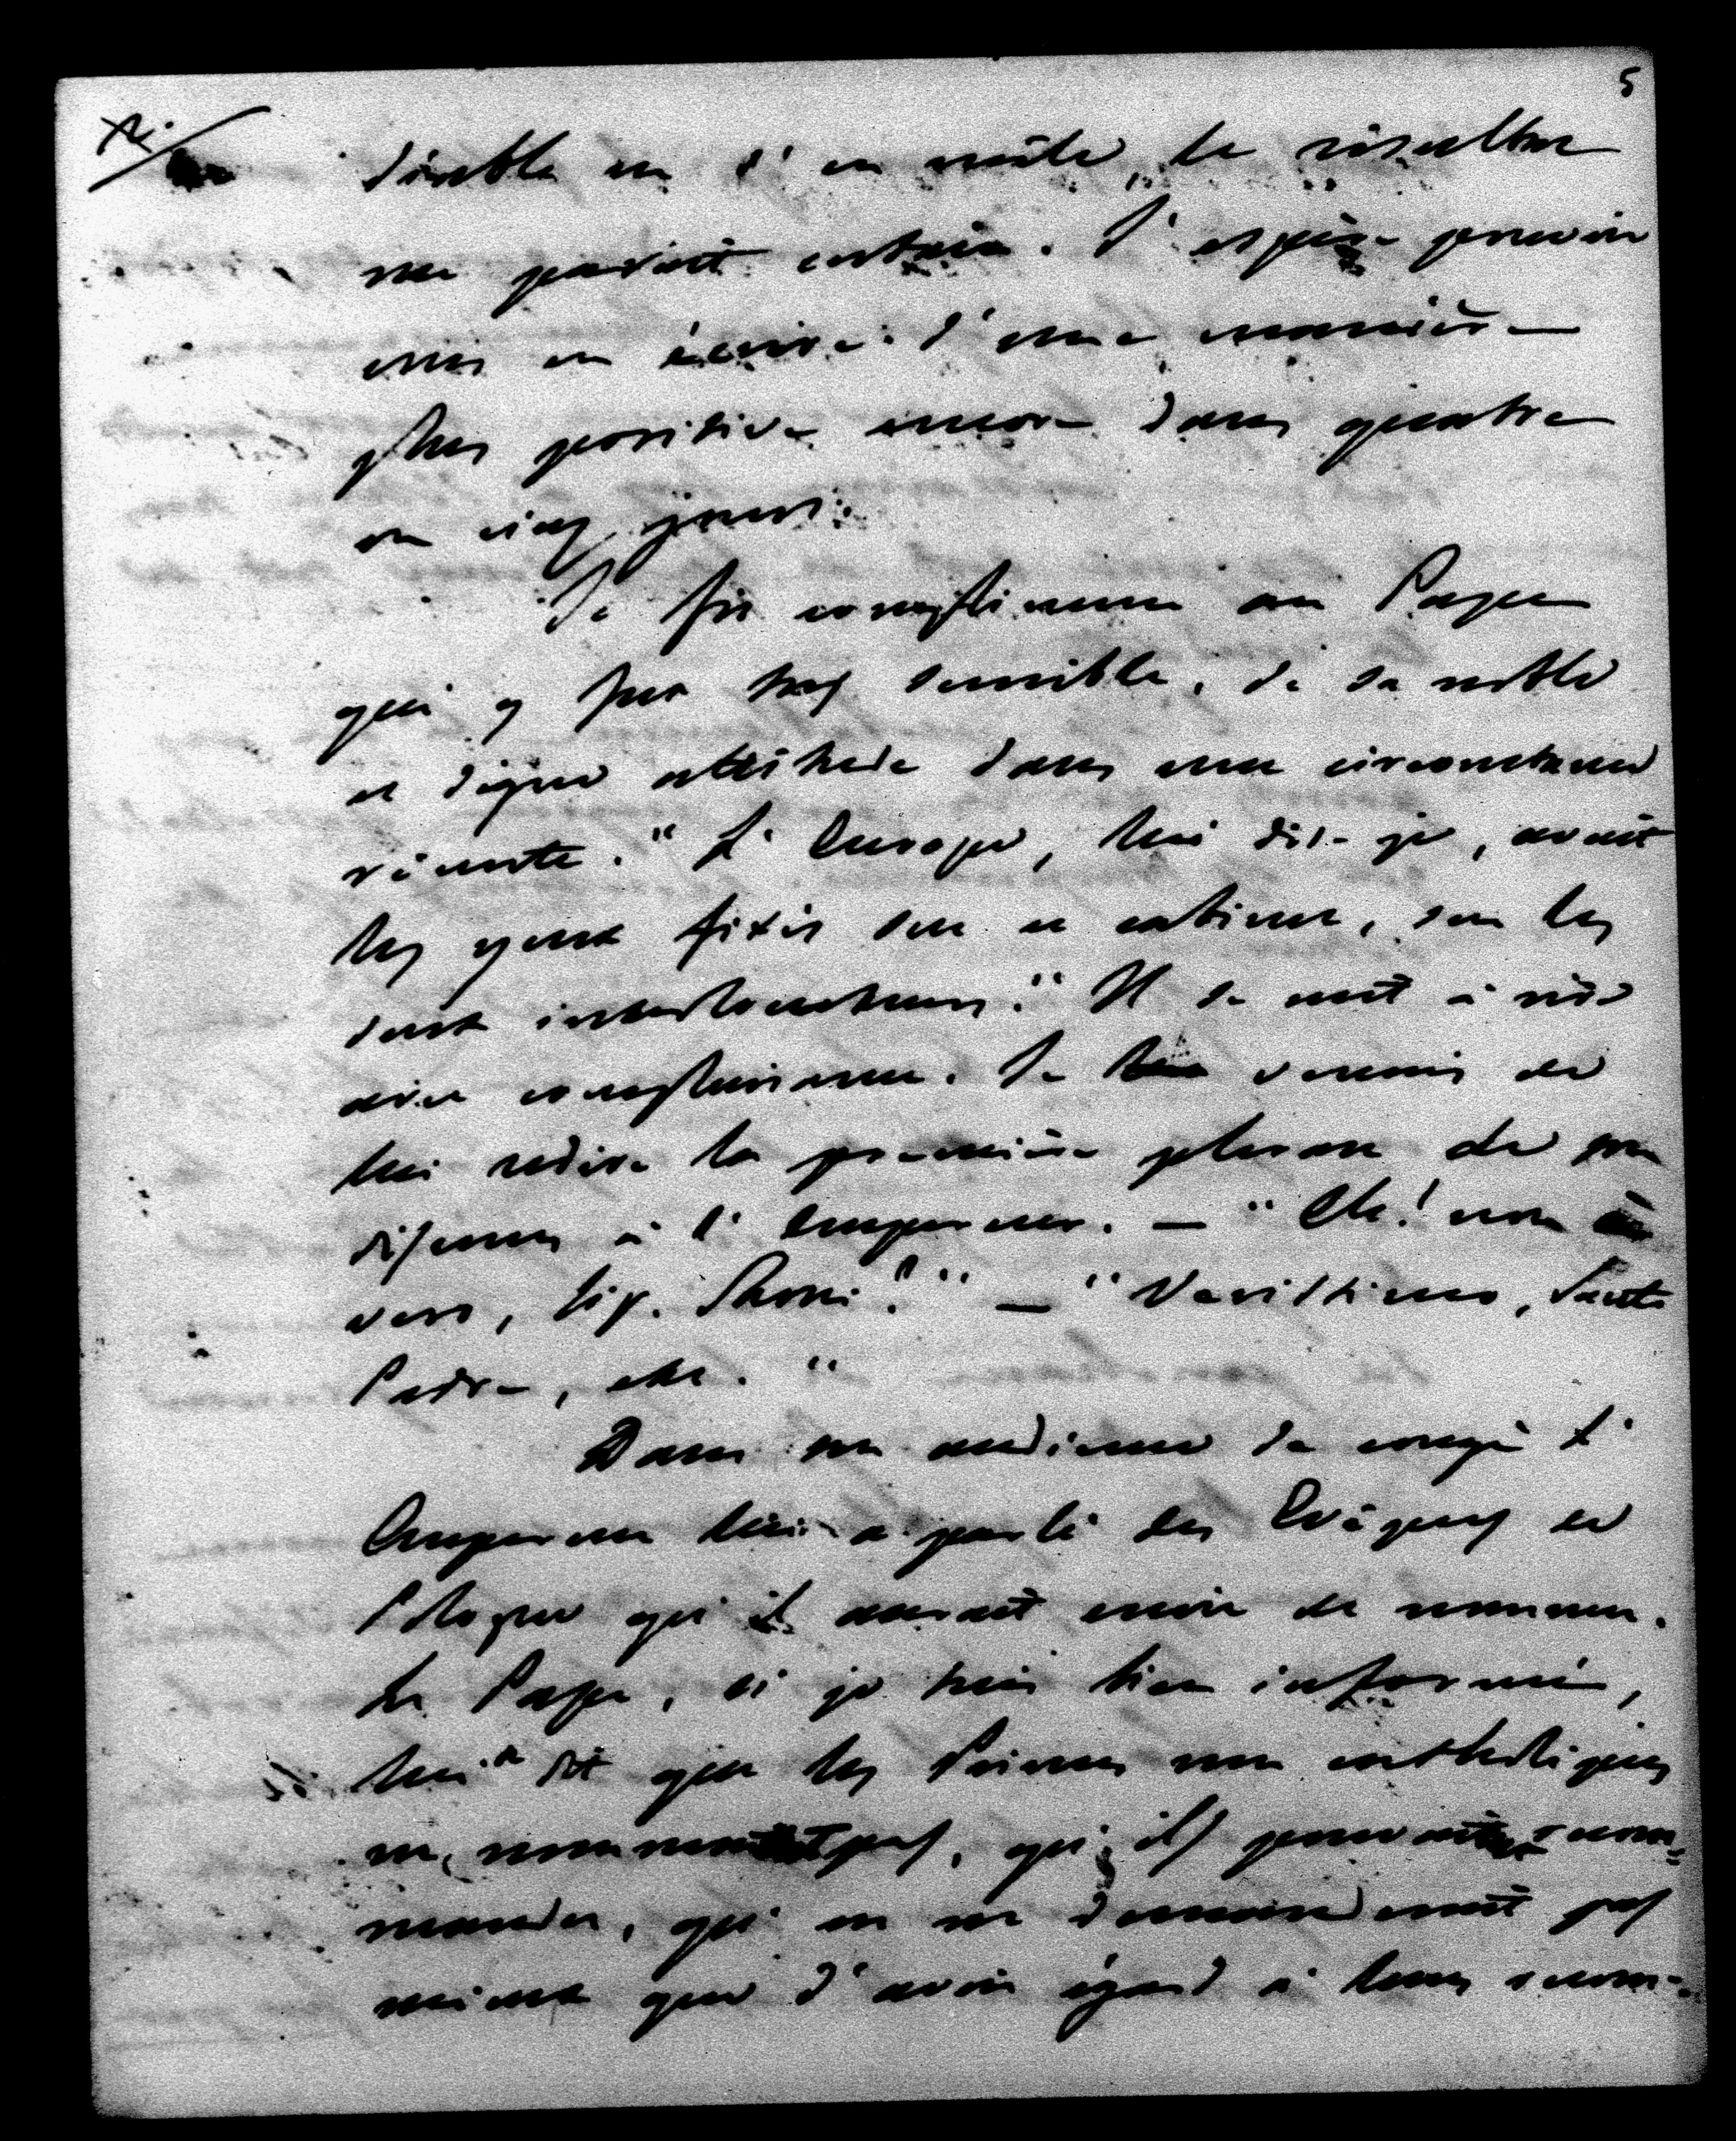 5
double en s'en mêle, le résultat
me paraît certain. J'espère pouvoir
vous en écrire d'une manière
plus positive encore dans quatre
ou cinq jours.
Je fis compliment au Pape
qui y fut très sensible, de sa noble
et digne attitude dans une circonstance
récente. "L'Europe, lui dis-je, avait
les yeux fixés sur ce cabinet, sur les
deux interlocuteurs." Il se mit à rire
avec complaisance. Je venais de
lui redire la première phrase de son
discours à l'Empereur. — "Eh! non è
vero, Sig. Rossi?" — "Verissimo, Santo
Padre, etc."
Dans son audience de congé l'
Empereur lui a parlé des Evêques de
Pologne qu'il aurait envie de nommer.
Le Pape, si je suis bien informé,
lui a dit que les Princes non catholiques
ne nommaient pas, qu'ils pouvaient recom=
mander, qu'on ne demanderait pas
mieux que d'avoir égard à leurs recom-